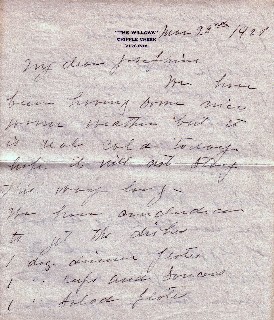 "THE WILLOWS"
CRIPPLE CREEK
VIRGINIA
Mar 23rd 1928
My dear Josephine
We have
been having some nice
warm weather but it
is cold today
hope it will not stay
this way long.
We have concluded
to get the dishes
1 doz dinner plates
1 " cups and saucers
1 " salad plates